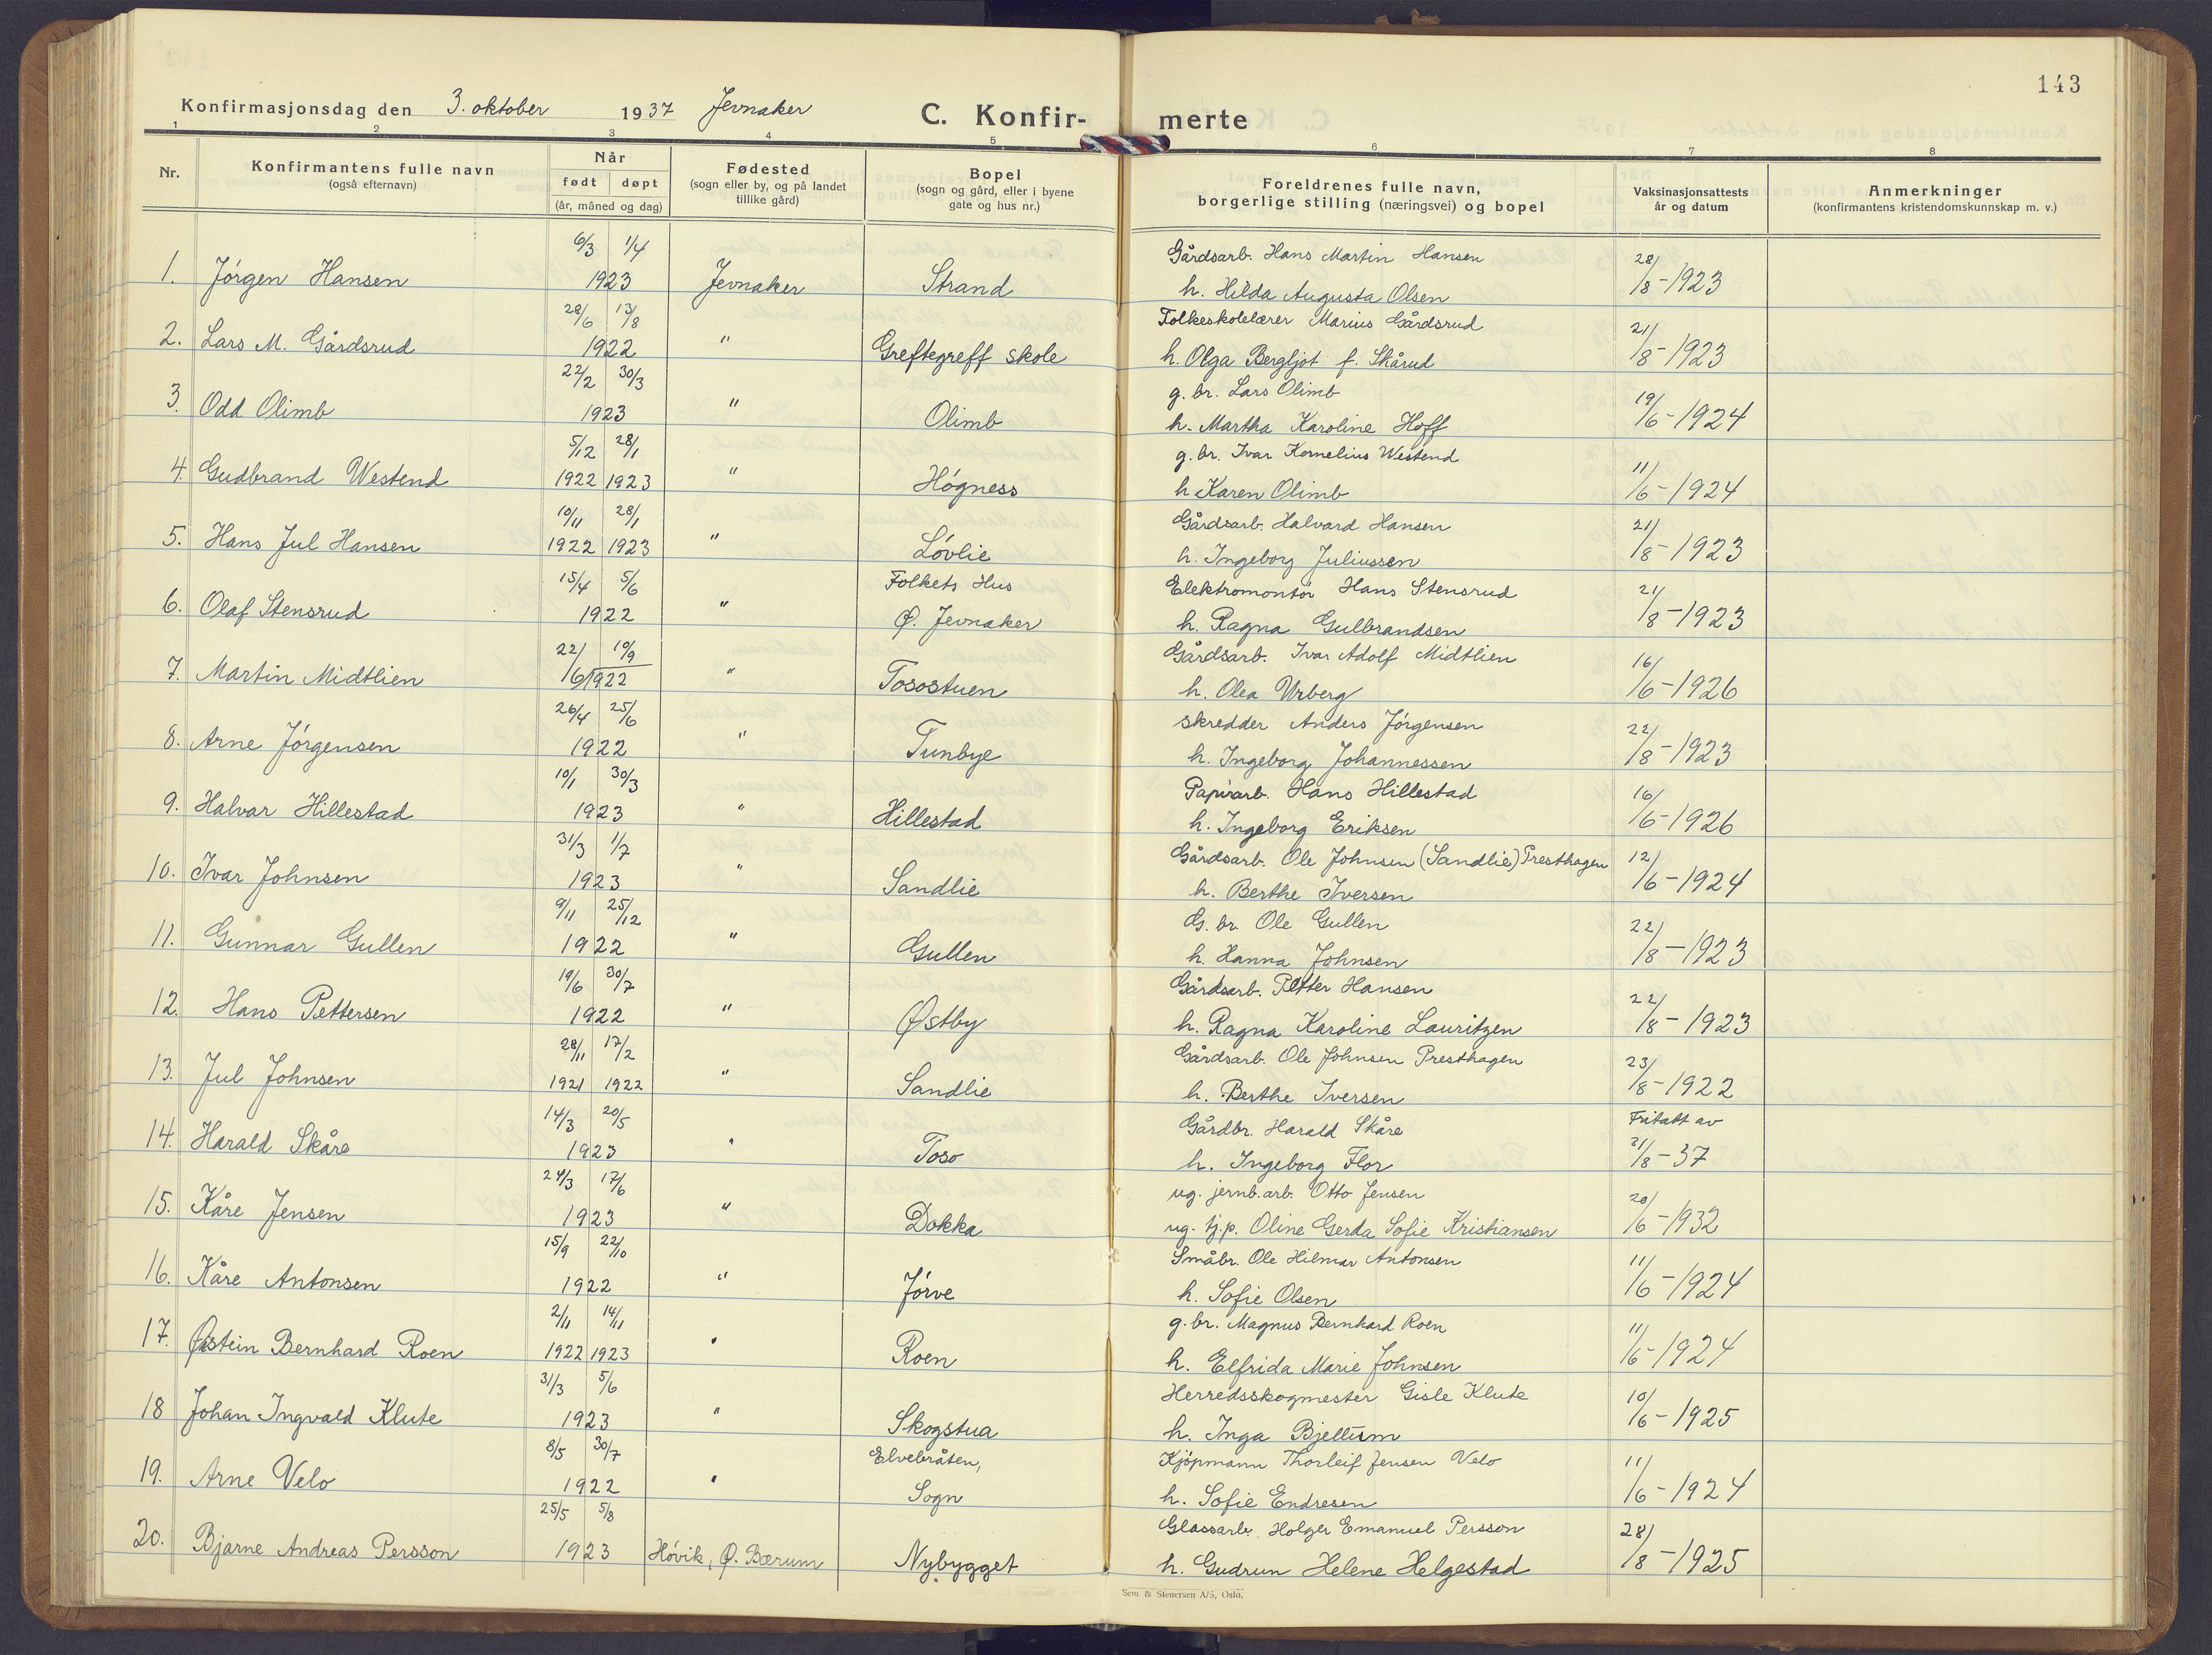 143
Konfirmasjonsdag den 3. oktober 1937 Jevnaker C. Konfir- merte
1 2 3 4 5 6 7 8
Nr. Konfirmantens fulle navn (også efternavn) Når født døpt (år, måned og dag) Fødested (sogn eller by, og på landet tillike gård) Bopel (sogn og gård, eller i byene gate og hus nr.) Foreldrenes fulle navn, borgerlige stilling (næringsvei) og bopel Vaksinasjonsattests år og datum Anmerkninger (konfirmantens kristendomskunnskap m. v.)
6/3 1/4 Gårdsarb. Hans Martin Hansen 28/
1. Jörgen Hansen 1923 Jevnaker Strand h. Hilda Augusta Olsen /8-1923
28/6 13/8 Folkeskolelærer Marius Gårdsrud 21/
2. Lars M. Gårdsrud 1922 " Greftegreff skole h. Olga Bergljot f. Skårud /8-1923
22/2 30/3 g. br. Lars Olimb 19/
3. Odd Olimb 1923 " Olimb h. Martha Karoline Hoff /6-1924
5/12 28/1 g. br. Ivar Kornelius Westend 11/
4. Gudbrand Westend 1922 1923 " Högness h Karen Olimb /6-1924
10/11 28/1 Gårdsarb. Halvard Hansen 21/
5. Hans Jul Hansen 1922 1923 " Lövlie h. Ingeborg Juliussen /8-1923
15/4 5/6 Folkets Hus Elektromontör Hans Stensrud 21/
6. Olaf Stensrud 1922 " Ø. Jevnaker h. Ragna Gulbrandsen /8-1923
22/ 10/9 Gårdsarb. Ivar Adolf Midtlien 16/
7. Martin Midtlien /6 1922 " Tosostuen h. Olea Urberg /6-1926
26/4 25/6 skredder Anders Jörgensen 22/
8. Arne Jörgensen 1922 " Tunbye h. Ingeborg Johannessen /8-1923
10/1 30/3 Papirarb. Hans Hillestad 16/
9. Halvar Hillestad 1923 " Hillestad h. Ingeborg Eriksen /6-1926
31/3 1/7 Gårdsarb. Ole Johnsen (Sandlie) Presthagen 12/
10. Ivar Johnsen 1923 " Sandlie h. Berthe Iversen /6-1924
9/11 25/12 G. br. Ole Gullen 22/
11. Gunnar Gullen 1922 " Gullen h. Hanna Johnsen /8-1923
19/6 30/7 Gårdsarb. Petter Hansen 22/
12. Hans Pettersen 1922 " Østby h. Ragna Karoline Lauritzen /8-1923
28/11 17/2 Gårdsarb. Ole Johnsen Presthagen 23/
13. Jul Johnsen 1921 1922 " Sandlie h. Berthe Iversen /8-1922
14/3 20/5 Gårdbr. Harald Skåre Fritatt av
14. Harald Skåre 1923 " Toso h. Ingeborg Flor 31/8-37
24/3 17/6 ug. jernb.arb. Otto Jensen 20/
15. Kåre Jensen 1923 " Dokka ug. tj.p. Oline Gerda Sofie Kristiansen /6-1932
15/9 22/10 Småbr. Ole Hilmar Antonsen 11/
16. Kåre Antonsen 1922 " Jörve h. Sofie Olsen /6-1924
2/11 14/11 g. br. Magnus Bernhard Roen 11/
17. Øistein Bernhard Roen 1922 1923 " Roen h. Elfrida Marie Johnsen /6-1924
31/3 5/6 Herredsskogmester Gisle Klute 10/
18 Johan Ingvald Klute 1923 " Skogstua h. Inga Bjellum /6-1925
8/5 30/7 Elvebråten, Kjöpmann Thorleif Jensen Velo 11/
19. Arne Velo 1922 " Sogn h. Sofie Endresen /6-1924
25/5 5/8 Glassarb. Holger Emanuel Persson 28/
20. Bjarne Andreas Persson 1923 Hövik, Ø. Bærum Nybygget h. Gudrun Helene Helgestad /8-1925
Sem & Stenersen A/S, Oslo.